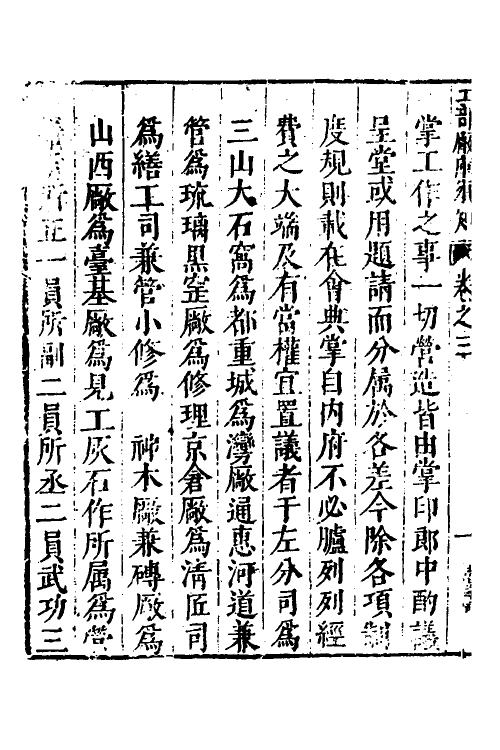 工部廠庫須知 卷之三 一
掌工作之事一切營造皆由掌印郎中酌議
呈堂或用題請而分屬於各差今除各項制
度規則載在會典掌自内府不必臚列列經
費之大端及有當權宜置議者于左分司爲
三山大石窩爲都重城爲灣廠通惠河道兼
管爲琉璃黒窰廠爲修理京倉廠爲清匠司
爲繕工司兼管小修爲 神木廠兼磚廠爲
山西廠爲臺基廠爲見工灰石作所属爲營
所正一員所副二員所丞二員武功三